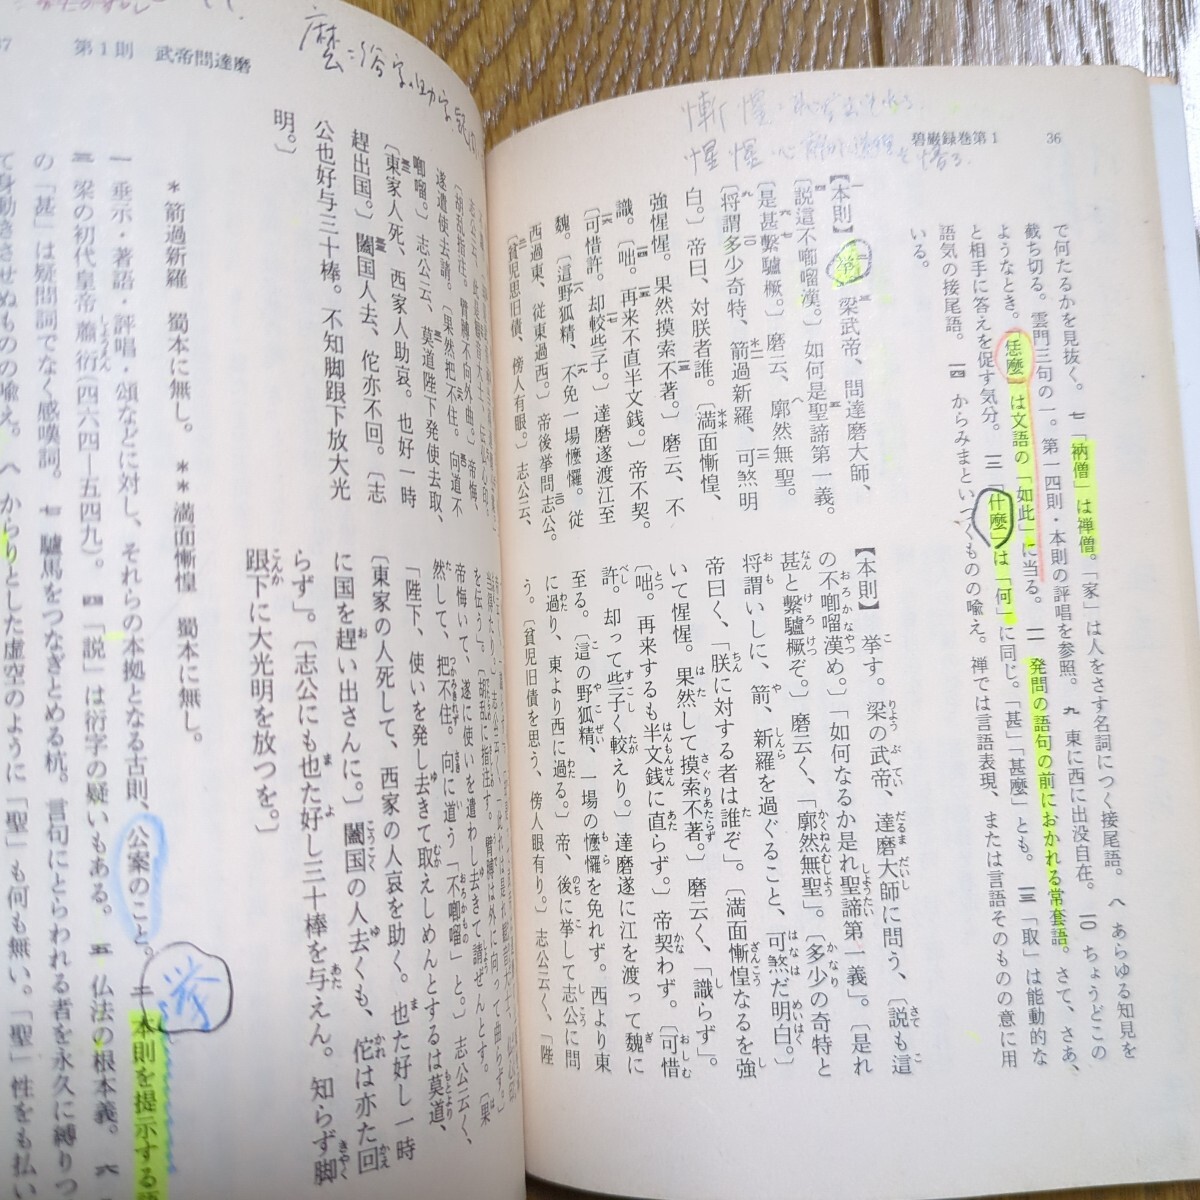 碧巌録巻第1　36
で何たるかを見抜く。　七「衲僧」は禅僧。「家」は人をさす名詞につく接尾語。　八 あらゆる知見を
截ち切る。雲門三句の一。第一四則・本則の評唱を参照。　九 東に西に出没自在。　一〇 ちょうどこの
ようなとき。「恁麼」は文語の「如此」に当る。　一一 発問の語句の前におかれる常套語。さて、さあ、
と相手に答えを促す気分。　一二「什麼」は「何」に同じ。「甚」「甚麼」とも。　一三「取」は能動的な
語気の接尾語。　一四 からみまといつくものの喩え。禅では言語表現、または言語そのものの意に用
いる。
【本則】挙。梁武帝、問達磨大師、
〔説這不喞𠺕漢。〕如何是聖諦第一義。
〔是甚繫驢橛。〕磨云、廓然無聖。
〔将謂多少奇特、箭過新羅、可煞明
白。〕帝曰、対朕者誰。〔満面慚惶、
強惺惺。果然摸索不著。〕磨云、不
識。〔咄。再来不直半文銭。〕帝不契。
〔可惜許。却較些子。〕達磨遂渡江至
魏。〔這野狐精、不免一場㦬㦬。従
西過東、従東過西。〕帝後挙問志公。
〔貧児思旧債、傍人有眼。〕志公云、
【本則】　挙す。梁の武帝、達磨大師に問う、〔説も這
の不喞𠺕漢め。〕「如何なるか是れ聖諦第一義」。〔是れ
甚と繫驢橛ぞ。〕磨云く、「廓然無聖」。〔多少の奇特と
将謂いしに、箭、新羅を過ぐること、可煞だ明白。〕
帝曰く、「朕に対する者は誰ぞ」。〔満面慚惶なるを強
いて惺惺。果然して摸索不著。〕磨云く、「識らず」。
〔咄。再来するも半文銭に直らず。〕帝契わず。〔可惜
許。却って些子く較えり。〕達磨遂に江を渡って魏に
至る。〔這の野狐精、一場の㦬㦬を免れず。西より東
に過り、東より西に過る。〕帝、後に挙して志公に問
う。〔貧児旧債を思う、傍人眼有り。〕志公云く、「陛
37　第1則　武帝問達磨
遂遣使去請。〔果然把不住。向道不
喞𠺕。〕志公云、莫道陛下発使去取、
〔東家人死、西家人助哀。也好一時
趕出国。〕闔国人去、佗亦不回。〔志
公也好与三十棒。不知脚跟下放大光
明。〕
帝悔いて、遂に使いを遣わし去きて請ぜんとす。〔果
然して、把不住。向に道う「不喞𠺕」と。〕志公云く、
「陛下、使いを発し去きて取えしめんとするは莫道、
〔東家の人死して、西家の人哀を助く。也た好し一時
に国を趕い出さんに。〕闔国の人去くも、佗は亦た回
らず」。〔志公にも也た好し三十棒を与えん。知らず脚
跟下に大光明を放つを。〕
＊箭過新羅　蜀本に無し。　＊＊満面慚惶　蜀本に無し。
一 垂示・著語・評唱・頌などに対し、それらの本拠となる古則、公案のこと。　二 本則を提示する
三 梁の初代皇帝蕭衍（四六四―五四九）。　四「説」は衍字の疑いもある。　五 仏法の根本義。　六
の「甚」は疑問詞でなく感嘆詞。　七 驢馬をつなぎとめる杭。言句にとらわれる者を永久に縛りつ
て身動きさせぬものの喩え。　八 からりとした虚空のように「聖」も何も無い。「聖」性をも払い
挙